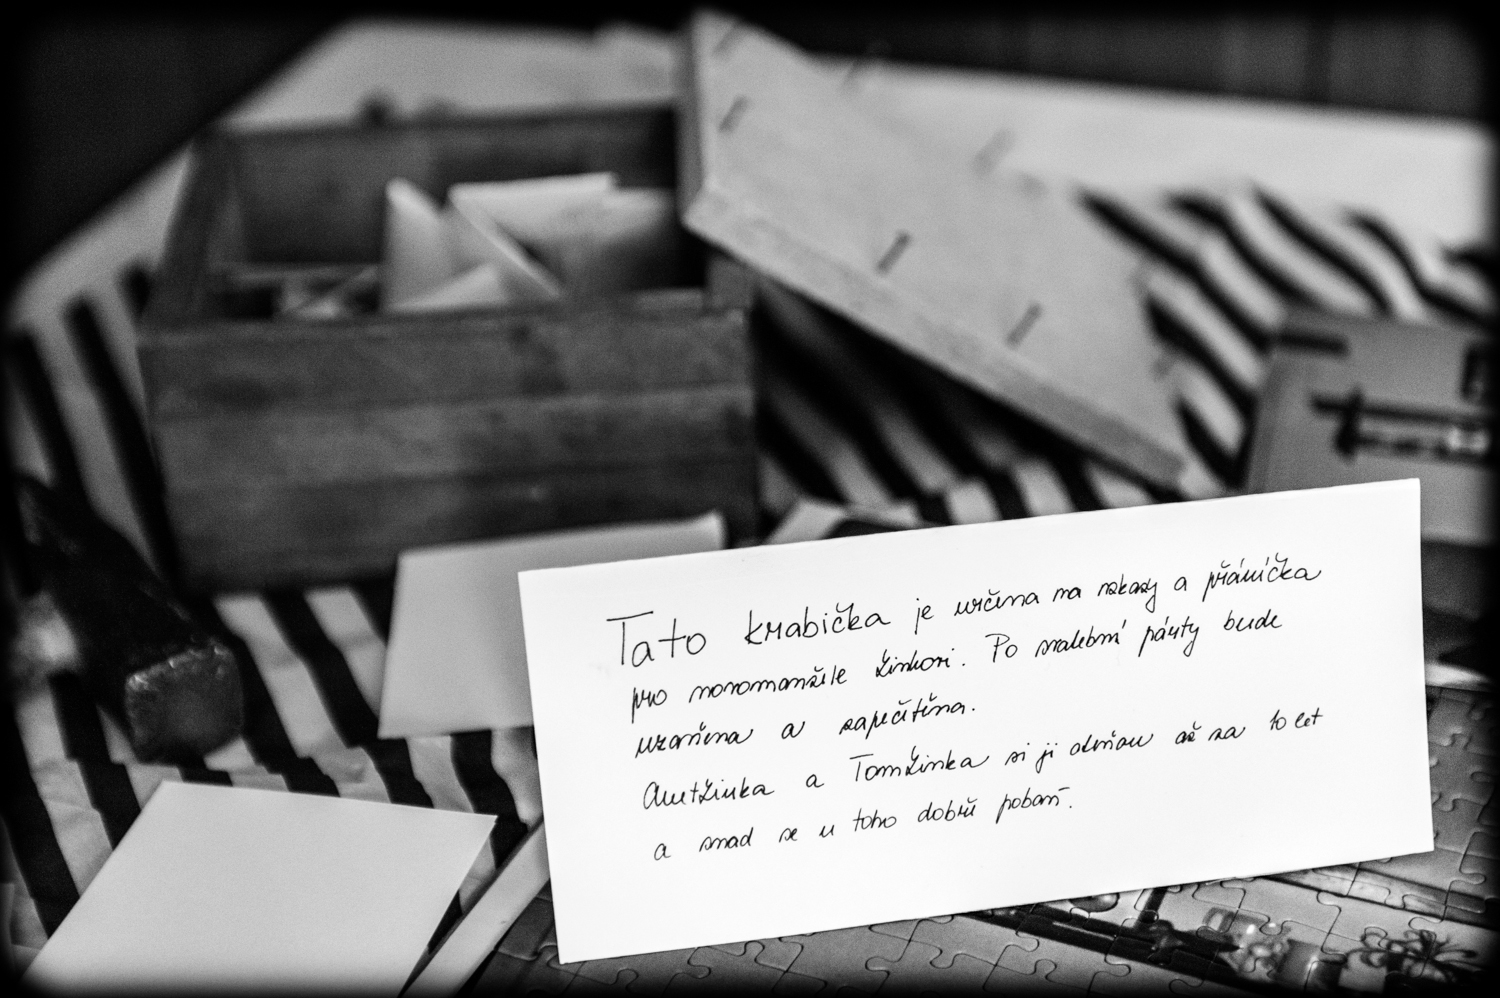 Tato krabička je určena na vzkazy a přáníčka
pro novomanžele Žinkovi. Po svatební párty bude
uzavřena a zapečetěna.
AnetŽinka a TomŽinka si ji otevřou až za 10 let
a snad se u toho dobře pobaví.